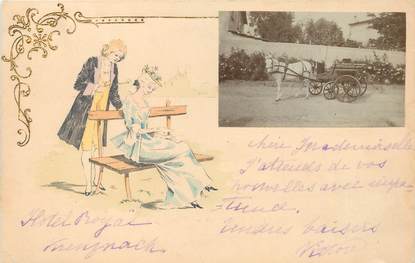 chère Mademoiselle
J'attends de vos
nouvelles avec impa-
tience.
Tendres baisers
Victor
Hotel Royal
Kreuznach